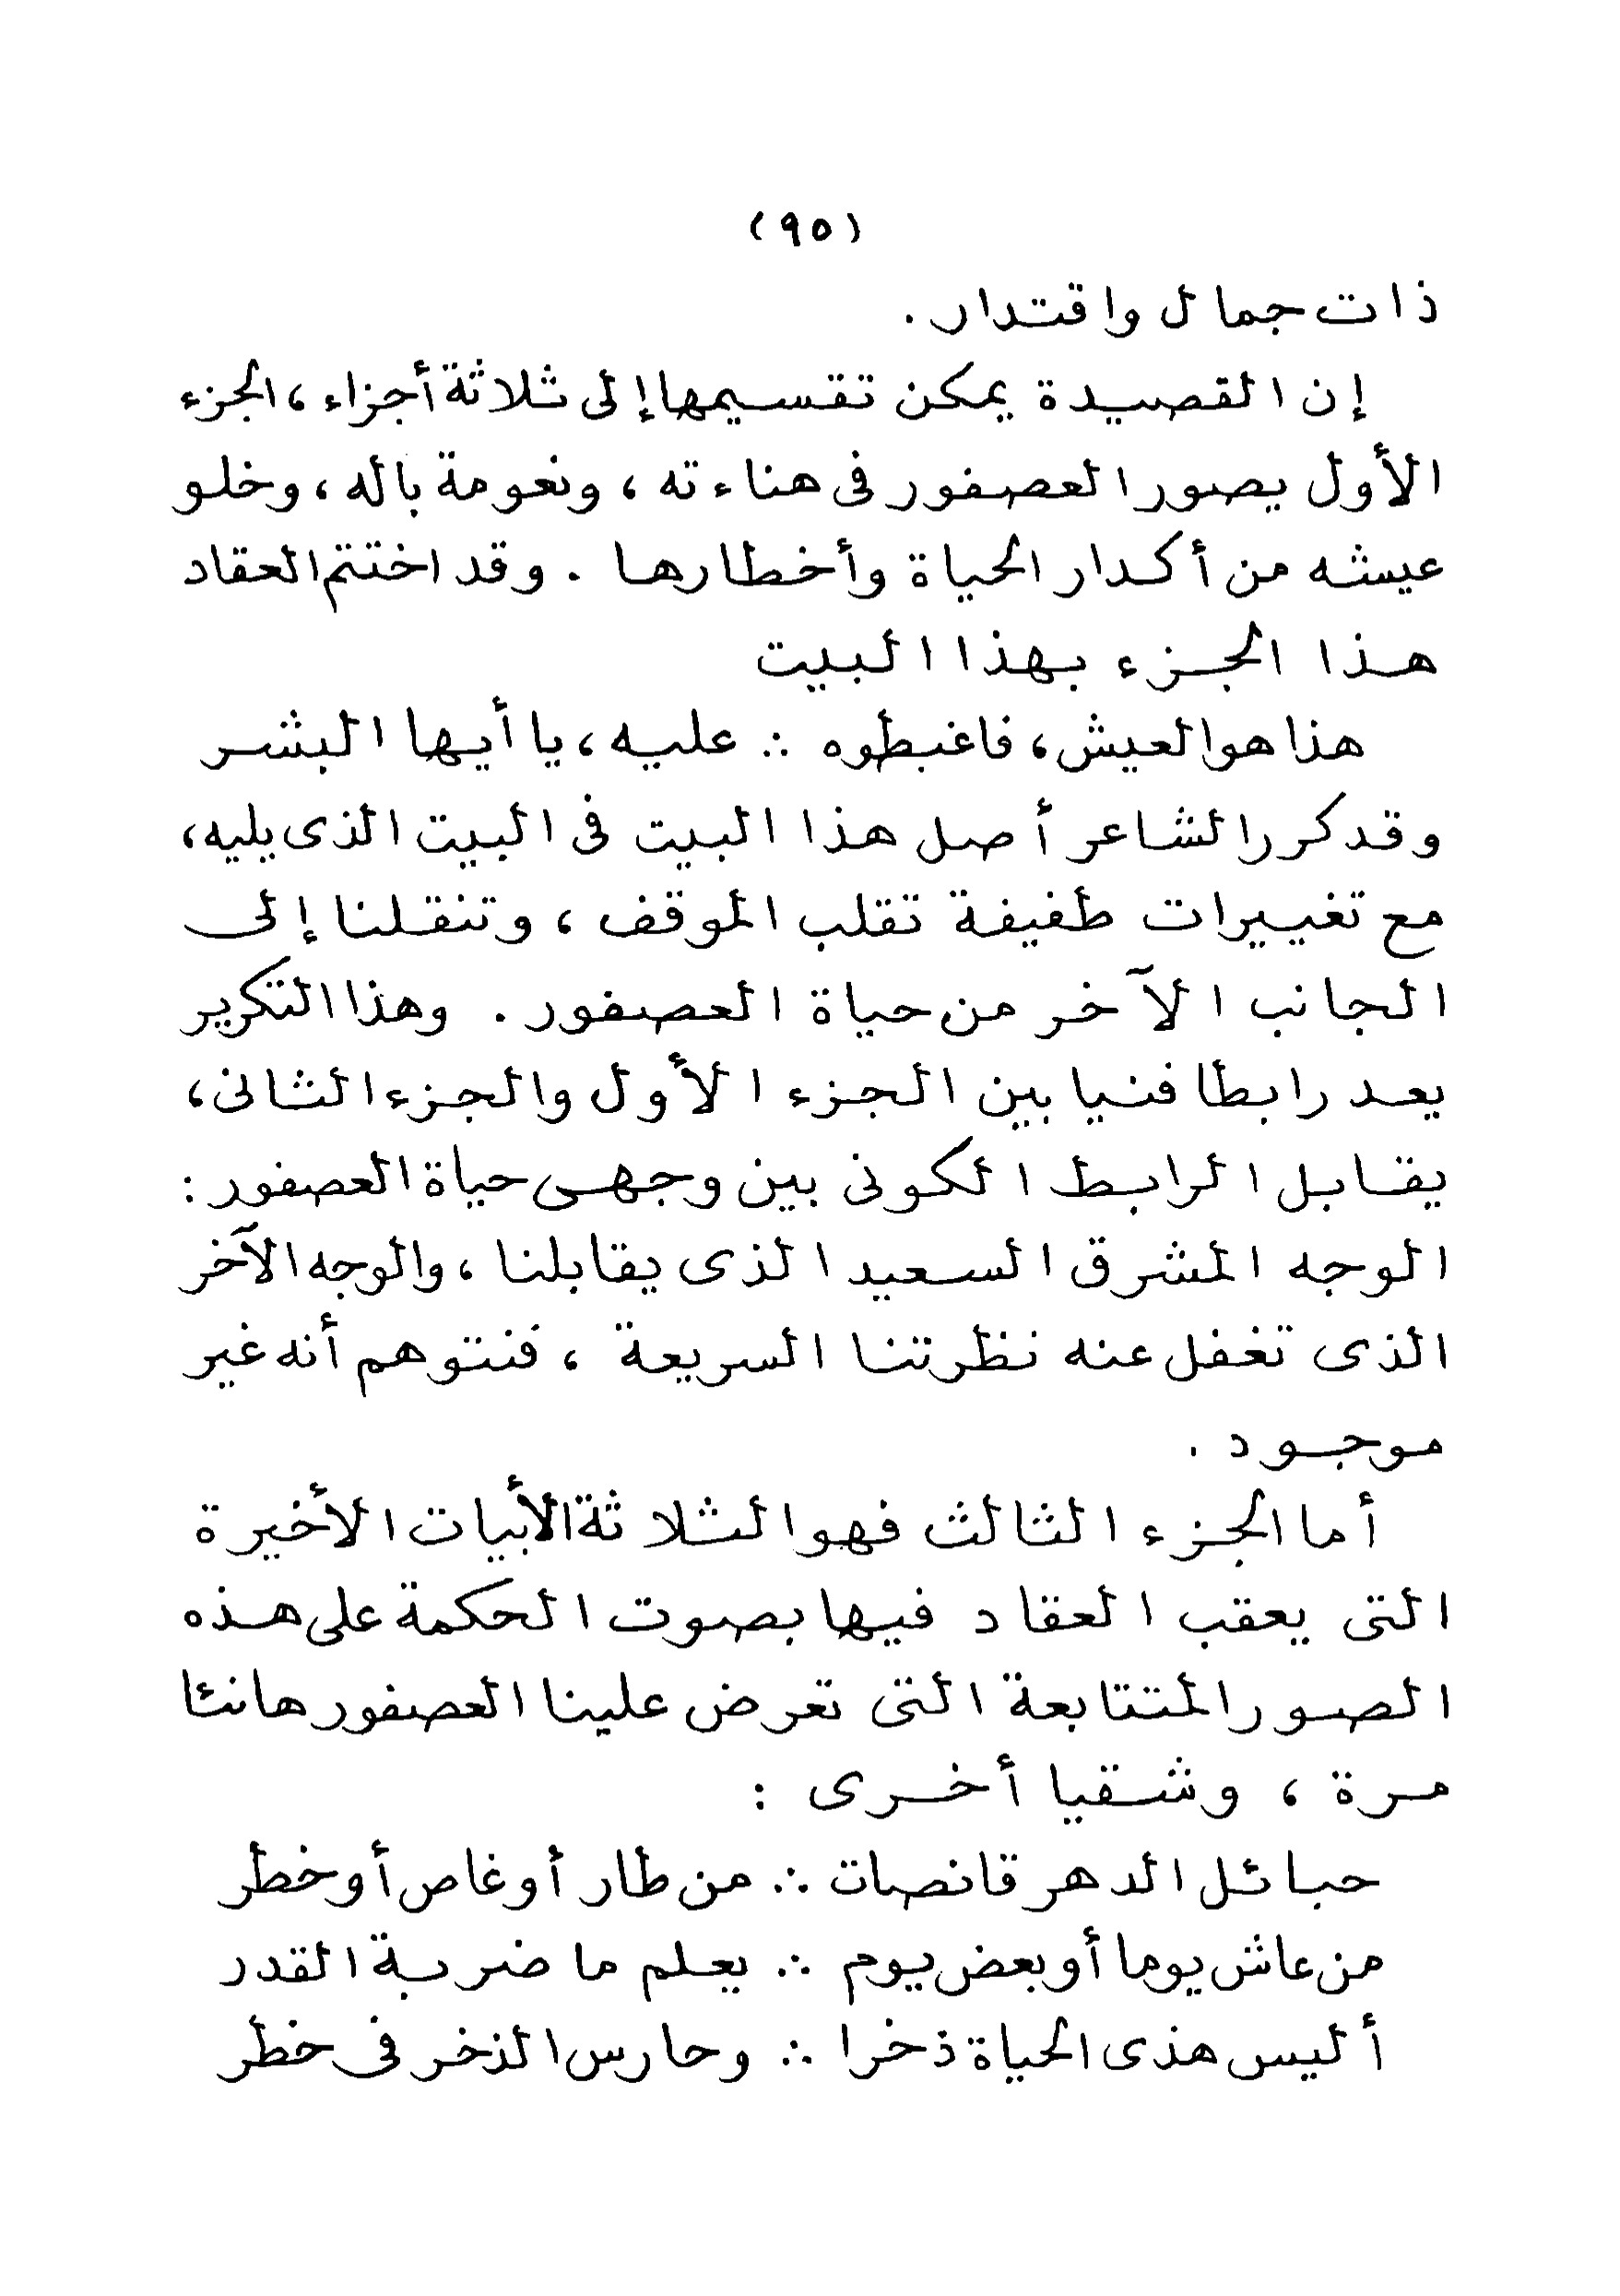 (٩٥)
ذات جمال واقتدار .
إن القصيدة يمكن تقسيمها إلى ثلاثة أجزاء ، الجزء
الأول يصور العصفور فى هناءته ، ونعومة باله ، وخلو
عيشه من أكدار الحياة وأخطارها . وقد اختتم العقاد
هذا الجزء بهذا البيت
هذا هو العيش ، فاغبطوه ∴ عليه ، يا أيها البشر
وقد كرر الشاعر أصل هذا البيت فى البيت الذى يليه ،
مع تغييرات طفيفة تقلب الموقف ، وتنقلنا إلى
الجانب الآخر من حياة العصفور . وهذا التكرير
يعد رابطا فنيا بين الجزء الأول والجزء الثانى ،
يقابل الرابط الكونى بين وجهى حياة العصفور :
الوجه المشرق السعيد الذى يقابلنا ، والوجه الآخر
الذى تغفل عنه نظرتنا السريعة ، فنتوهم أنه غير
موجود .
أما الجزء الثالث فهو الثلاثة الأبيات الأخيرة
التى يعقب العقاد فيها بصوت الحكمة على هذه
الصور المتتابعة التى تعرض علينا العصفور هانئا
مرة ، وشقيا أخرى :
حبائل الدهر قانصات ∴ من طار أو غاص أو خطر
من عاش يوما أو بعض يوم ∴ يعلم ما ضربة القدر
أليس هذى الحياة ذخرا ∴ وحارس الذخر فى خطر